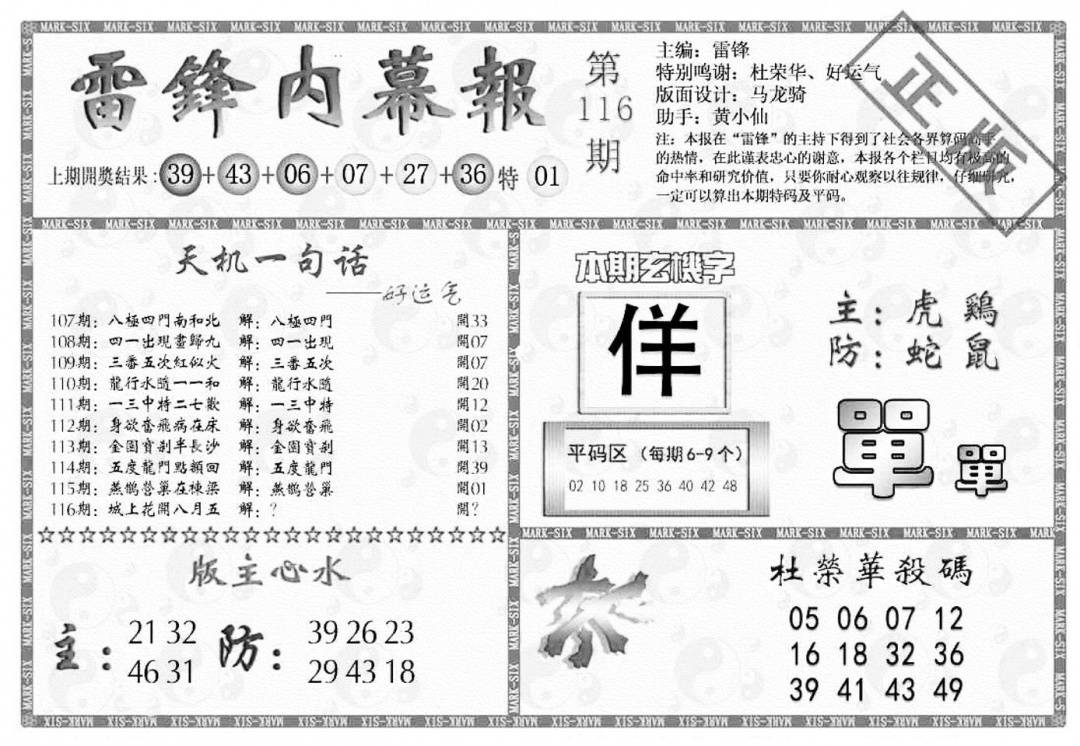 雷鋒内幕報
第
116
期
主编：雷锋
特别鸣谢：杜荣华、好运气
版面设计：马龙骑
助手：黄小仙
注：本报在“雷锋”的主持下得到了社会各界算码高手
的热情，在此谨表忠心的谢意，本报各个栏目均有极高的
命中率和研究价值，只要你耐心观察以往规律，仔细研究，
一定可以算出本期特码及平码。
正版
上期開獎结果：39+43+06+07+27+36特01
天机一句话
——好运气
107期：八極四門南和北 解：八極四門 開33
108期：四一出現畫歸九 解：四一出現 開07
109期：三番五次紅似火 解：三番五次 開07
110期：龍行水隨一一和 解：龍行水隨 開20
111期：一三中特二七歡 解：一三中特 開12
112期：身欲奮飛病在床 解：身欲奮飛 開02
113期：金園寶刹半長沙 解：金園寶刹 開13
114期：五度龍門點額回 解：五度龍門 開39
115期：燕鹊營巢在棟梁 解：燕鹊營巢 開01
116期：城上花開八月五 解：？ 開？
本期玄機字
佯
平码区（每期6-9个）
02 10 18 25 36 40 42 48
主：虎 鷄
防：蛇 鼠
單 單
版主心水
主：21 32 防：39 26 23
46 31 29 43 18
杀
杜榮華殺碼
05 06 07 12
16 18 32 36
39 41 43 49
MARK-SIX